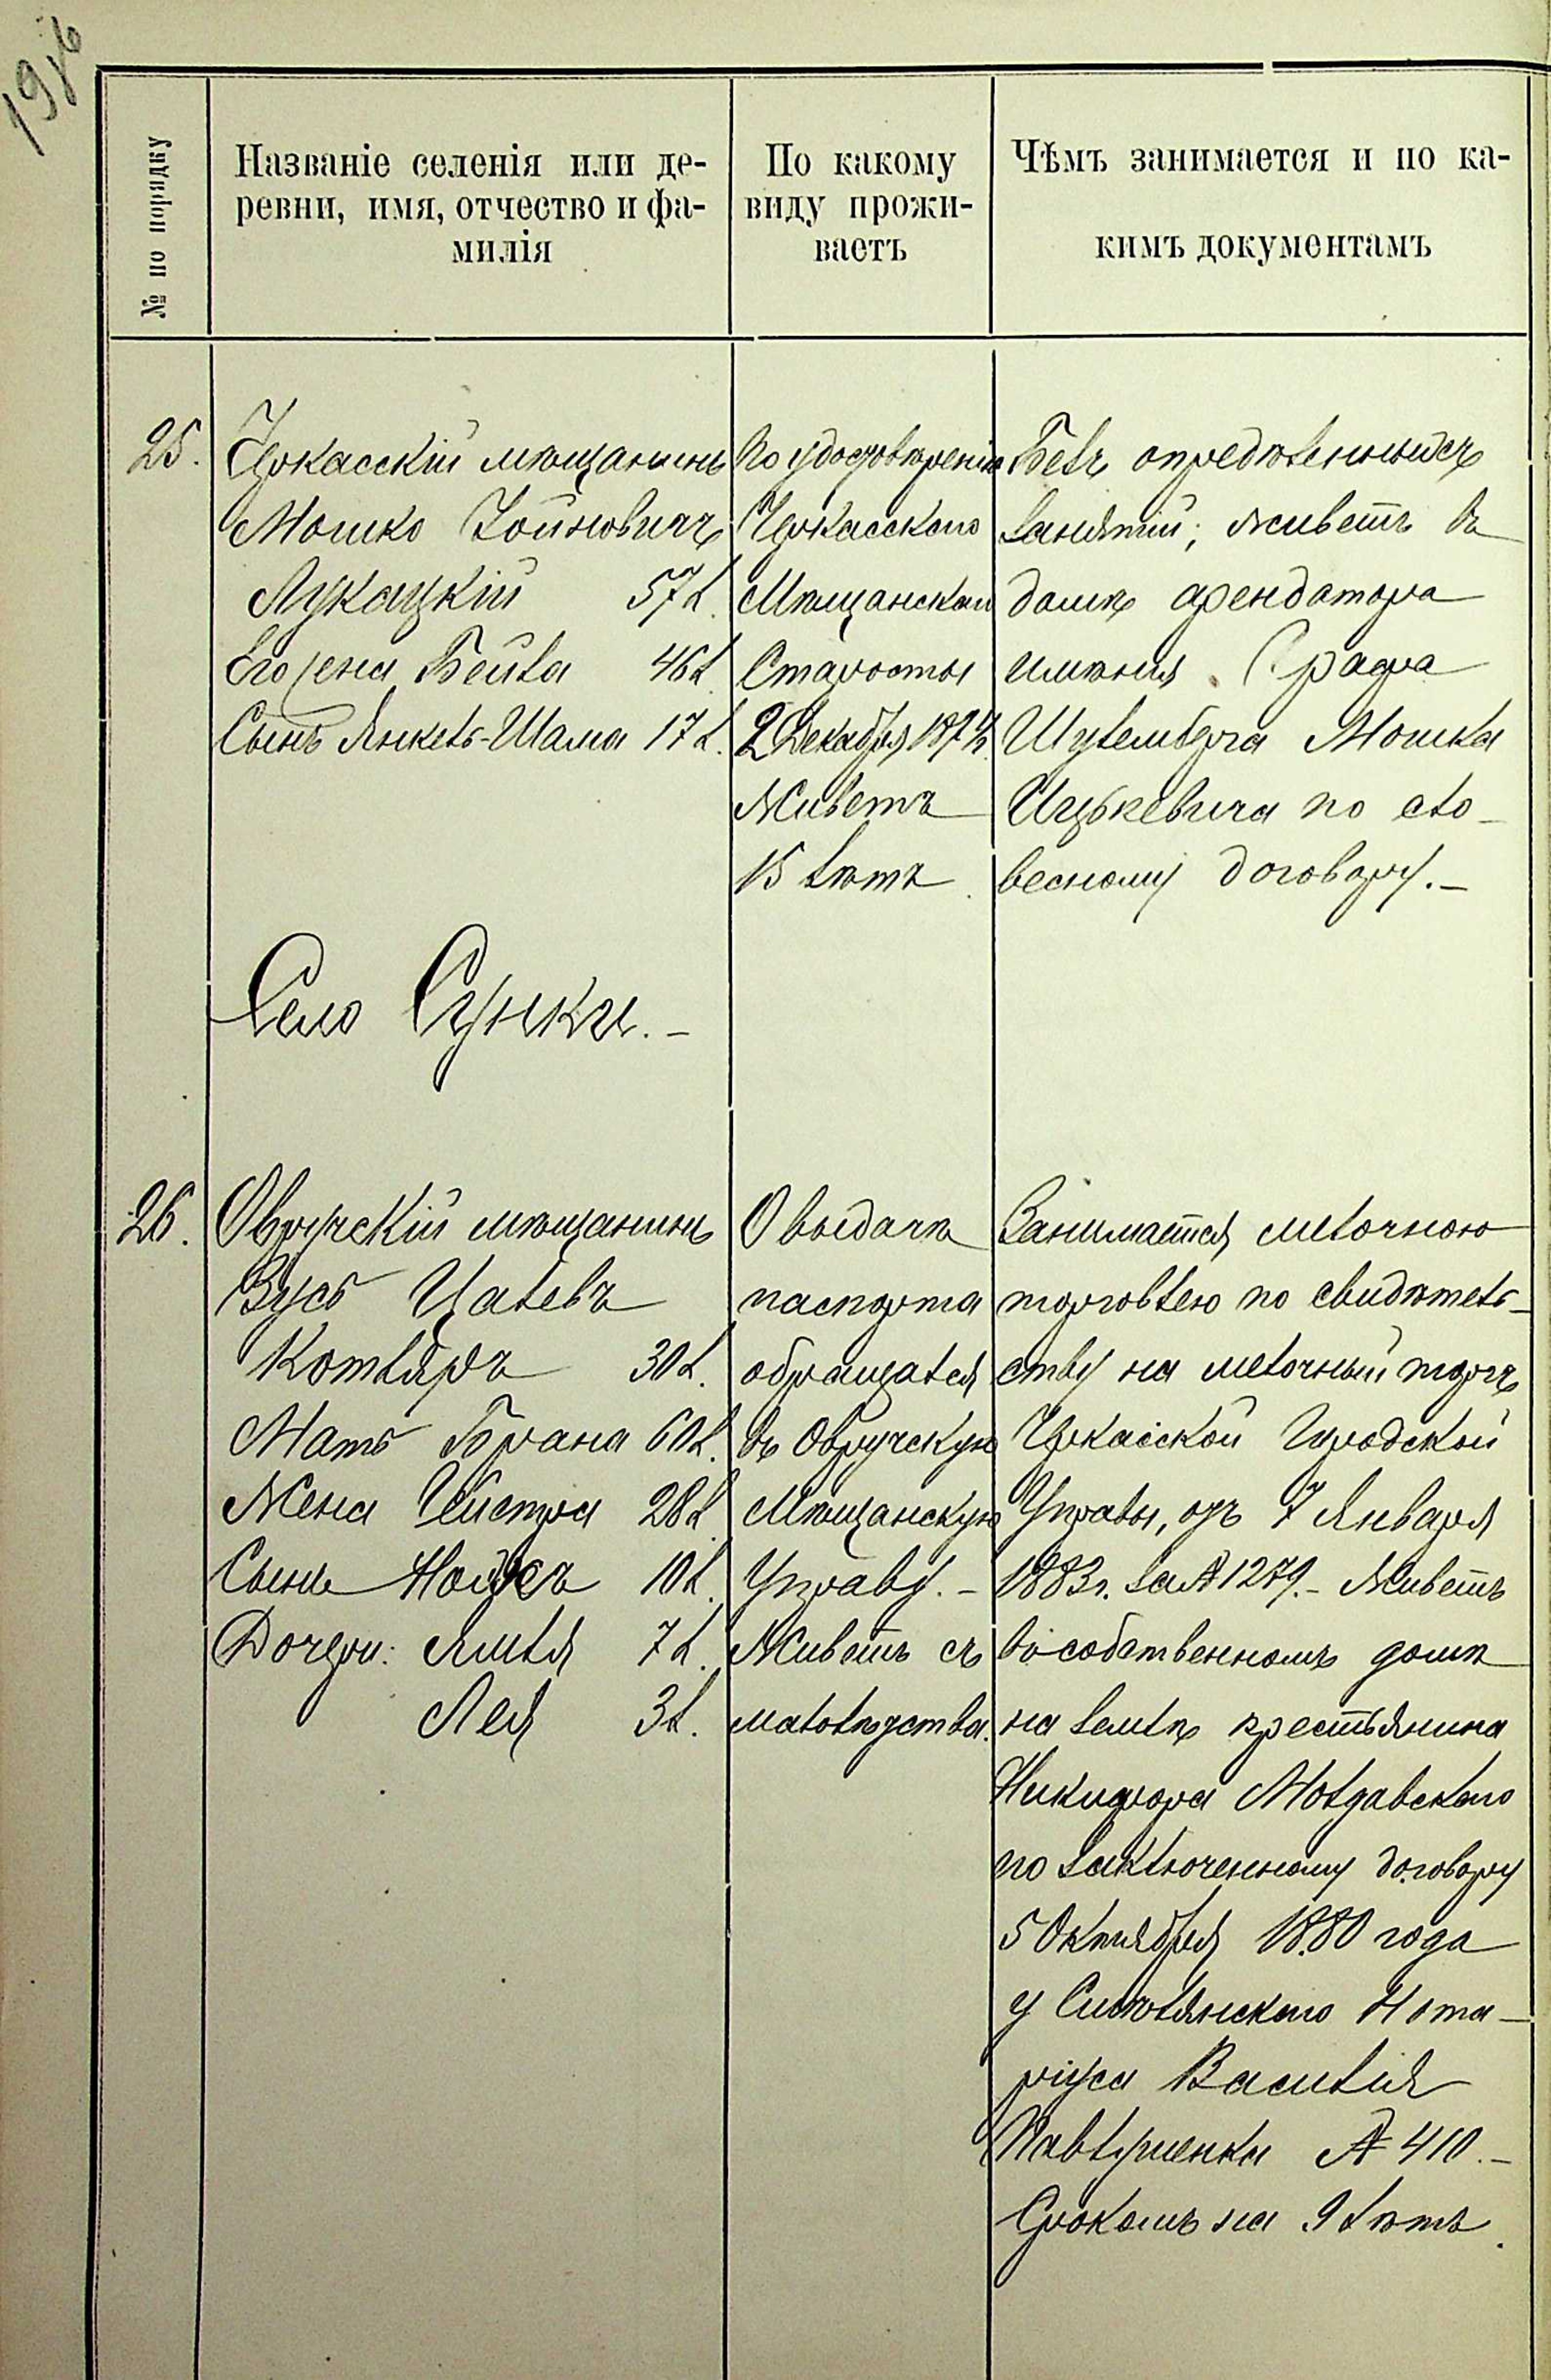 19об
№ по порядку
Названіе селенія или де-
ревни, имя, отчество и фа-
милія
По какому
виду прожи-
ваетъ
Чѣмъ занимается и по ка-
кимъ документамъ
25.
Черкасскій мѣщанинъ
Мошко Хойновичъ
Лукацкій 57 л.
Его жена Бейла 46 л.
Сынъ Янкель-Шама 17 л.
По удостовѣренію
Черкасского
Мѣщанскаго
Старосты
2 Декабря
Живетъ
15 лѣтъ.
Безъ опредѣленныхъ
занятій; живетъ въ
домѣ арендатора
имѣнія Графа
Мошка
Ицькевича по сло-
весному договору.-
Село Сунки.-
26.
Овручскій мѣщанинъ
Зусь Цалевъ
Котляръ 30 л.
Мать Брана 60 л.
Жена 28 л.
Сынъ 10 л.
Дочери: 7 л.
Лея 3 л.
О выдачѣ
паспорта
обращался
въ Овручскую
Мѣщанскую
Управу.-
Живетъ съ
малолѣтства.
Занимается мелочною
торговлею по свидѣтель-
ству на мелочный торгъ
Черкасской Городской
Управы, отъ 7 Января
1883 г. за № 1279.- Живетъ
въ собственномъ домѣ
на землѣ крестьянина
Никифора Молдавскаго
по заключенному договору
5 Октября 1880 года
у Смѣлянскаго Нота-
ріуса Василія
Павлушенка № 410.-
Срокомъ на 9 лѣтъ.